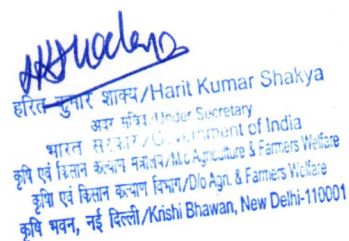 हरित कुमार शाक्य/Harit Kumar Shakya
अवर सचिव/Under Secretary
भारत सरकार/Government of India
कृषि एवं किसान कल्याण मंत्रालय/M/o Agriculture & Farmers Welfare
कृषि एवं किसान कल्याण विभाग/D/o Agn. & Farmers Welfare
कृषि भवन, नई दिल्ली/Krishi Bhawan, New Delhi-110001